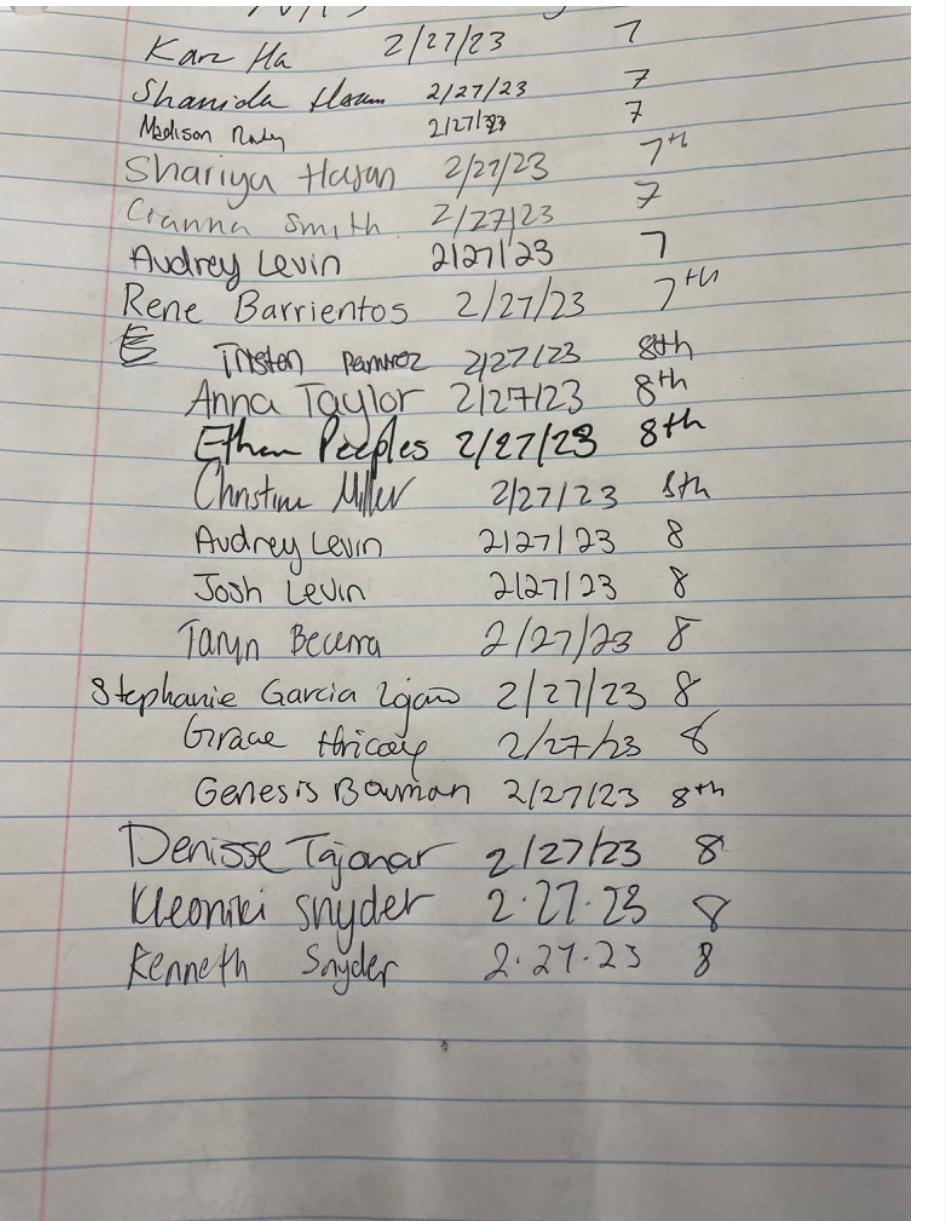 Ha 2/27/23 7
Shanida 2/27/23 7
Madison 2/27/23 7
Shariya Hasan 2/27/23 7th
Cianna Smith 2/27/23 7
Audrey Levin 2/27/23 7
Rene Barrientos 2/27/23 7th
E Tristen Ramirez 2/27/23 8th
Anna Taylor 2/27/23 8th
Ethan Peeples 2/27/23 8th
Christine Miller 2/27/23 8th
Audrey Levin 2/27/23 8
Josh Levin 2/27/23 8
Taryn Becerra 2/27/23 8
Stephanie Garcia 2/27/23 8
Grace 2/27/23 8
Genesis Bauman 2/27/23 8th
Denisse Tajonar 2/27/23 8
Kleoniki Snyder 2.27.23 8
Kenneth Snyder 2.27.23 8